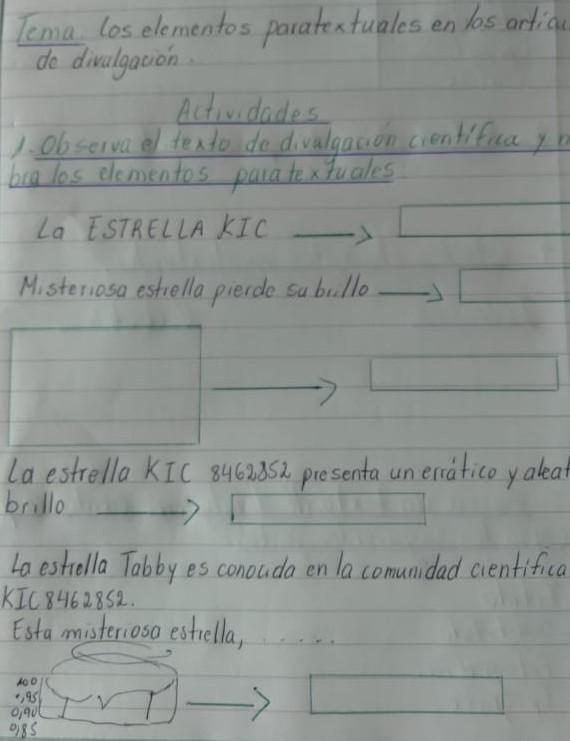 Tema. los elementos paratextuales en los articu
de divulgación.
Actividades
1. Observa el texto de divulgación científica y n
bra los elementos paratextuales
La ESTRELLA KIC
Misteriosa estrella pierde su brillo
La estrella KIC 8462852 presenta un errático y aleat
brillo
La estrella Tabby es conocida en la comunidad científica
KIC 8462852.
Esta misteriosa estrella, .....
100
0,95
0,90
0,85